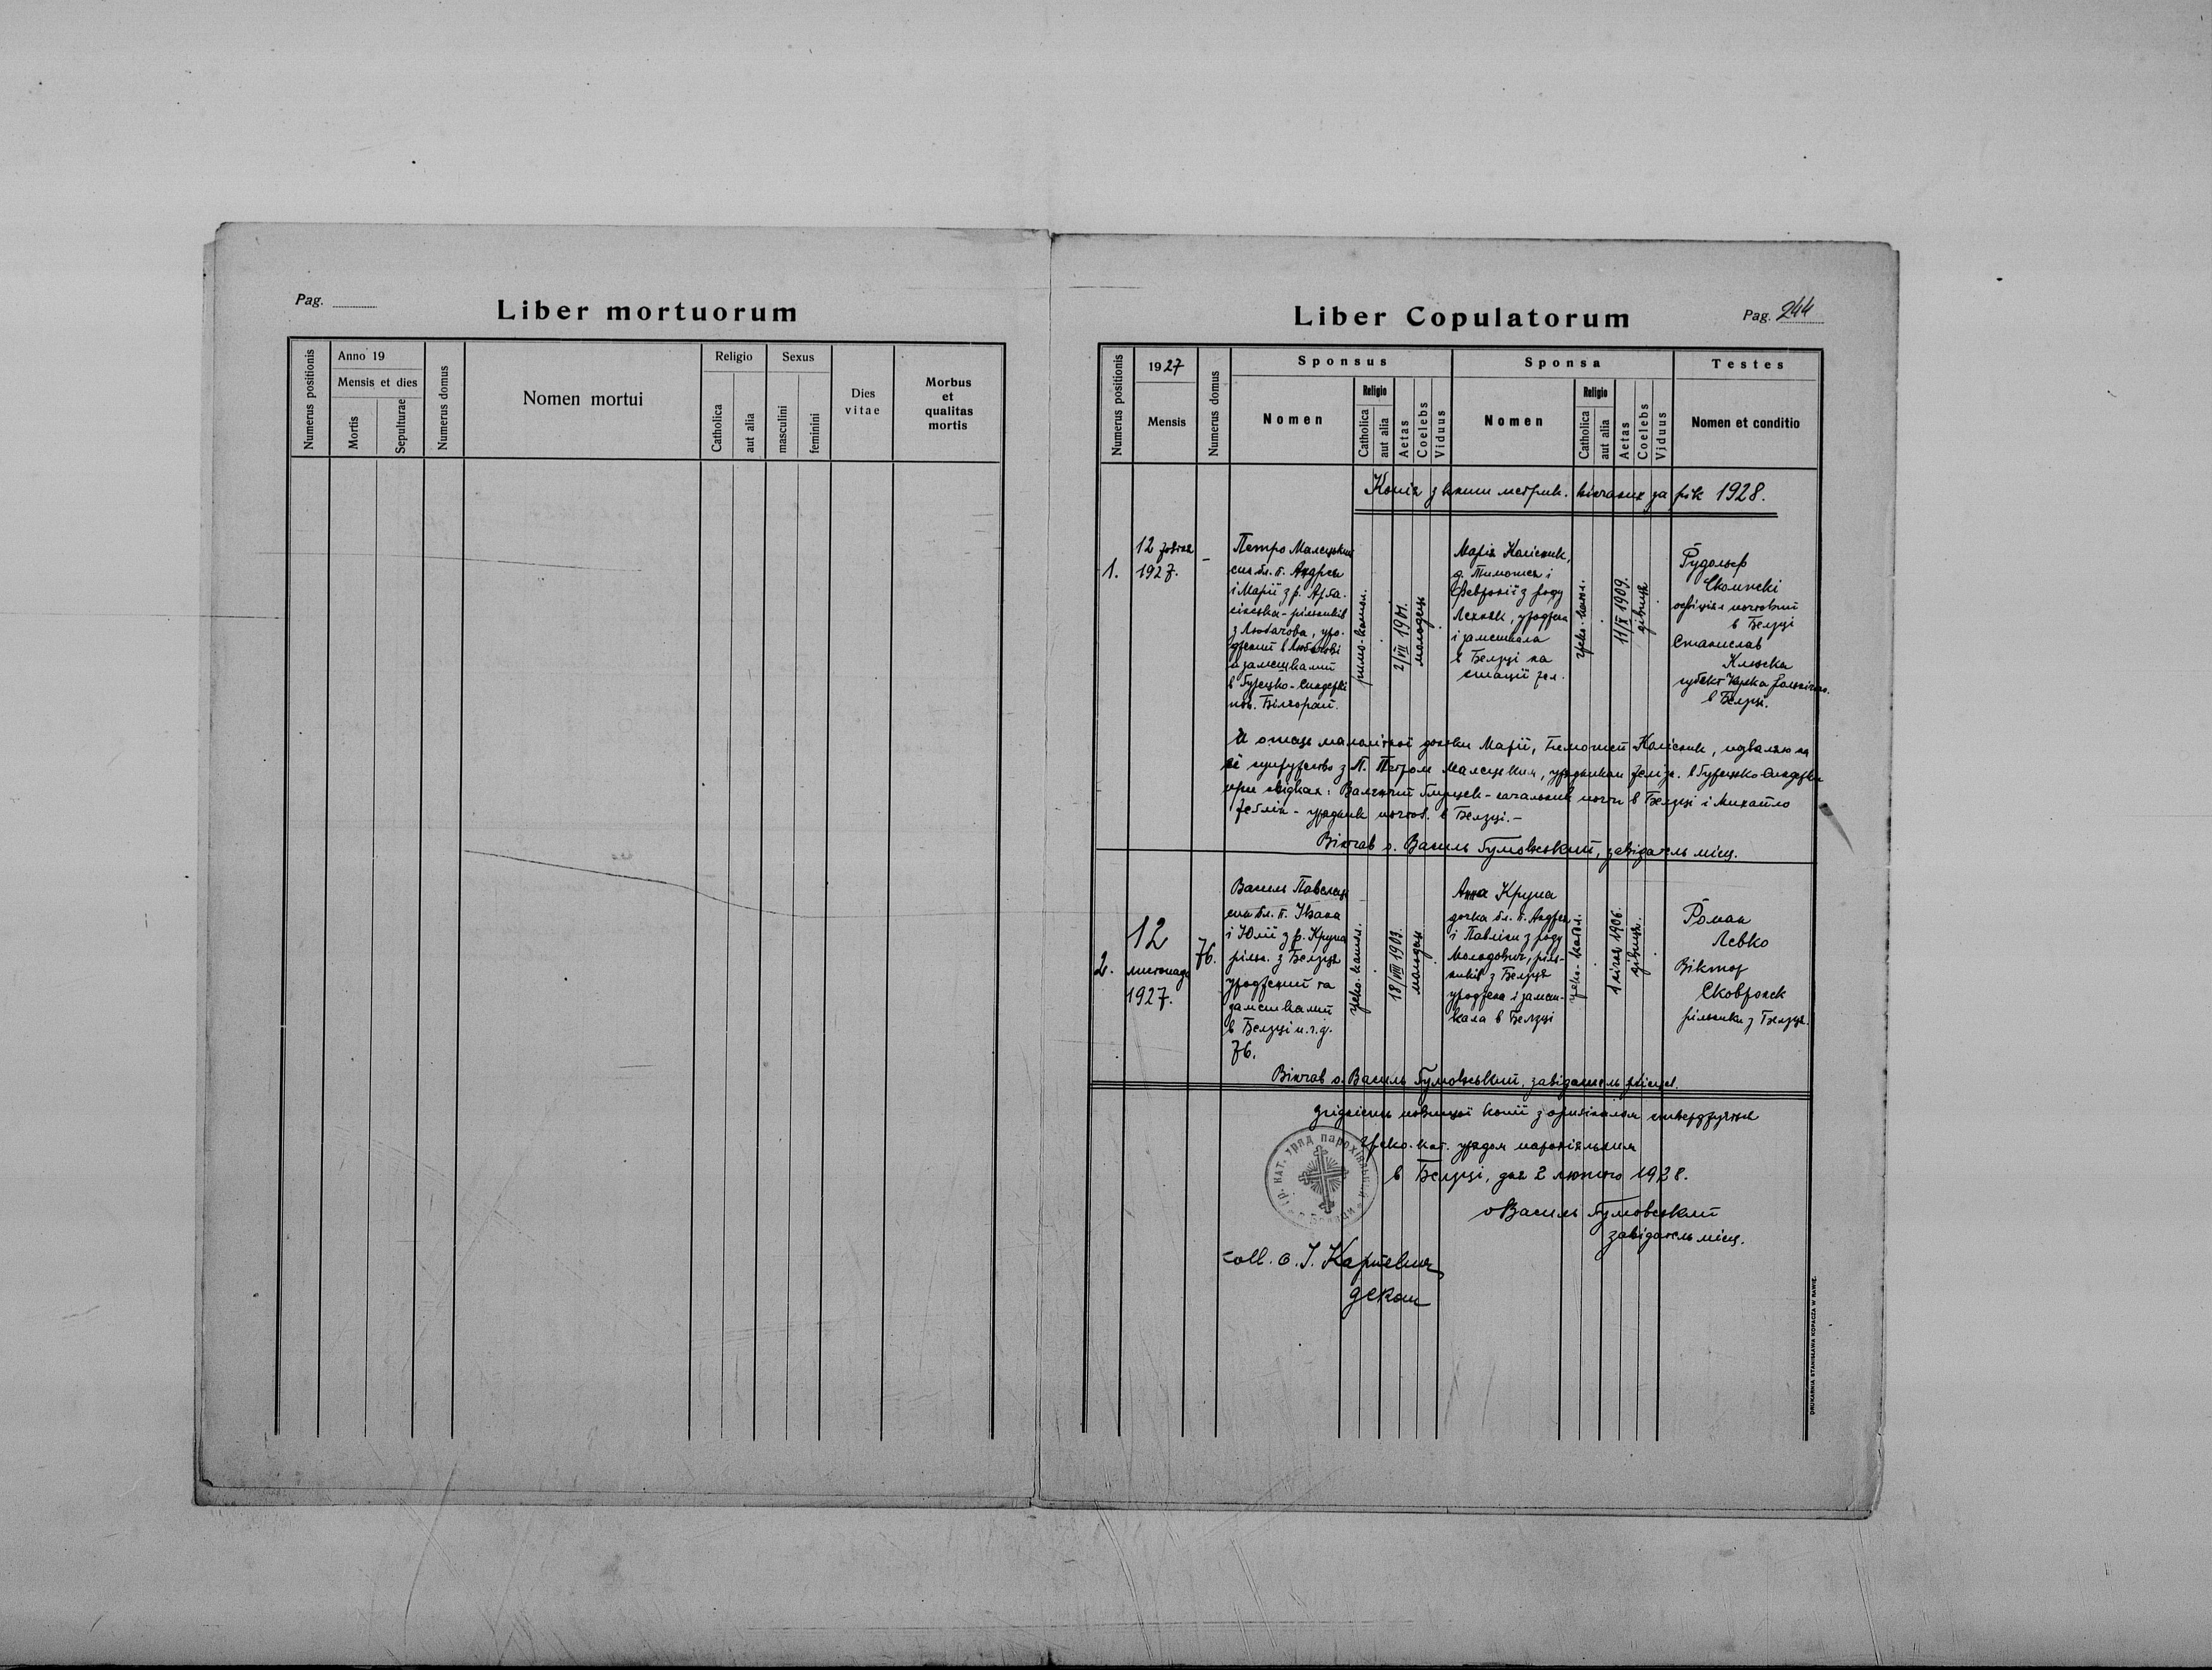 Pag.
Liber mortuorum
Numerus positionis
Anno 19
Mensis et dies
Mortis
Sepulturae
Numerus domus
Nomen mortui
Religio
Catholica
aut alia
Sexus
masculini
feminini
Dies
vitae
Morbus
et
qualitas
mortis
Liber Copulatorum
Pag. 244
Numerus positionis
1927
Mensis
Numerus domus
Sponsus
Nomen
Religio
Catholica
aut alia
Aetas
Coelebs
Viduus
Sponsa
Nomen
Religio
Catholica
aut alia
Aetas
Coelebs
Viduus
Testes
Nomen et conditio
Копія з книги метрик. вінчаних за рік 1928.
1.
12 жовтня
1927.
–
Петро Малецький
син бл. п. Андрея
і Марії з р.
рільників
з Любачова, уро-
джений в Любачові
а замешкалий
в
пов. Білгорай.
римо-катол.
2/VII 1901.
молодець
Марія Колісник,
д. Тимотея і
Февронії з роду
уроджена
і замешкала
в Белзці на
стації зел.
греко-катол.
11/X 1909.
дівиця
Рудольф
почтовий
в Белзці
Станислав
Клюска
в Белзці.
Я отець малолітної дочки Марії, Тимотей Колісник, позваляю на
її супружество з П. Петром Малецьким, урядником зеліз. в
при свідках: Валентий начальник почти в Белзці і Михайло
урядник почтов. в Белзці.–
Вінчав о. Василь Гумовський, завідатель місц.
2.
12
листопада
1927.
76.
Василь Павелец
син бл. п. Івана
і Юлії з р. Крупа
рільн. з Белзця
уроджений та
замешкалий
в Белзці п. ч. д.
76.
греко-катол.
18/VIII 1903.
молодець
Анна Крупа
дочка бл. п. Андрея
і Павліни з роду
Молодович, ріль-
ників з Белзця
уроджена і замеш-
кала в Белзці
греко-катол.
1 січня 1906.
дівиця.
Роман
Левко
Віктор
Сковронек
рільники з Белзця.
Вінчав о. Василь Гумовський, завідатель місцев.
Згідність повищої копії з оригіналом стверджується
Греко-кат. урядом парохіяльним
в Белзці, дня 2 лютого 1928.
о Василь Гумовський
завідатель місц.
coll. о. І. Карпевич
декан
DRUKARNIA STANISŁAWA KOPACZA W RAWIE.